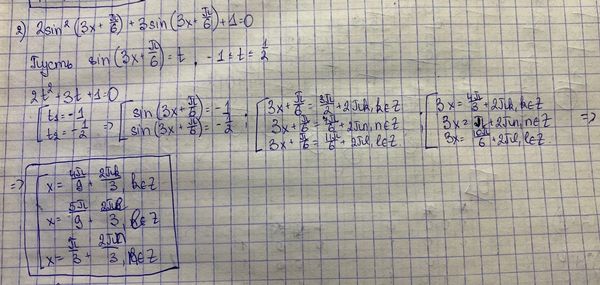 2) 2sin²(3x+π/6)+3sin(3x+π/6)+1=0
Пусть sin(3x+π/6)=t, -1≤t≤1/2
2t²+3t+1=0
[t₁=-1 t₂=-1/2 => [sin(3x+π/6)=-1 sin(3x+π/6)=-1/2 ; [3x+π/6=3π/2+2πk, k∈Z 3x+π/6=7π/6+2πn, n∈Z 3x+π/6=11π/6+2πl, l∈Z ; [3x=4π/3+2πk, k∈Z 3x=π+2πn, n∈Z 3x=10π/6+2πl, l∈Z. =>
=> [x=4π/9+2πk/3, k∈Z
x=5π/9+2πl/3, l∈Z
x=π/3+2πn/3, n∈Z